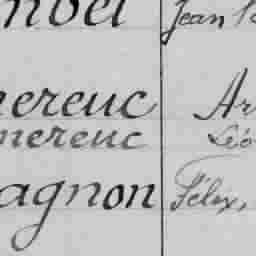 mbel Jean
nereuc Ar
mereuc Léo
agnon Félix,